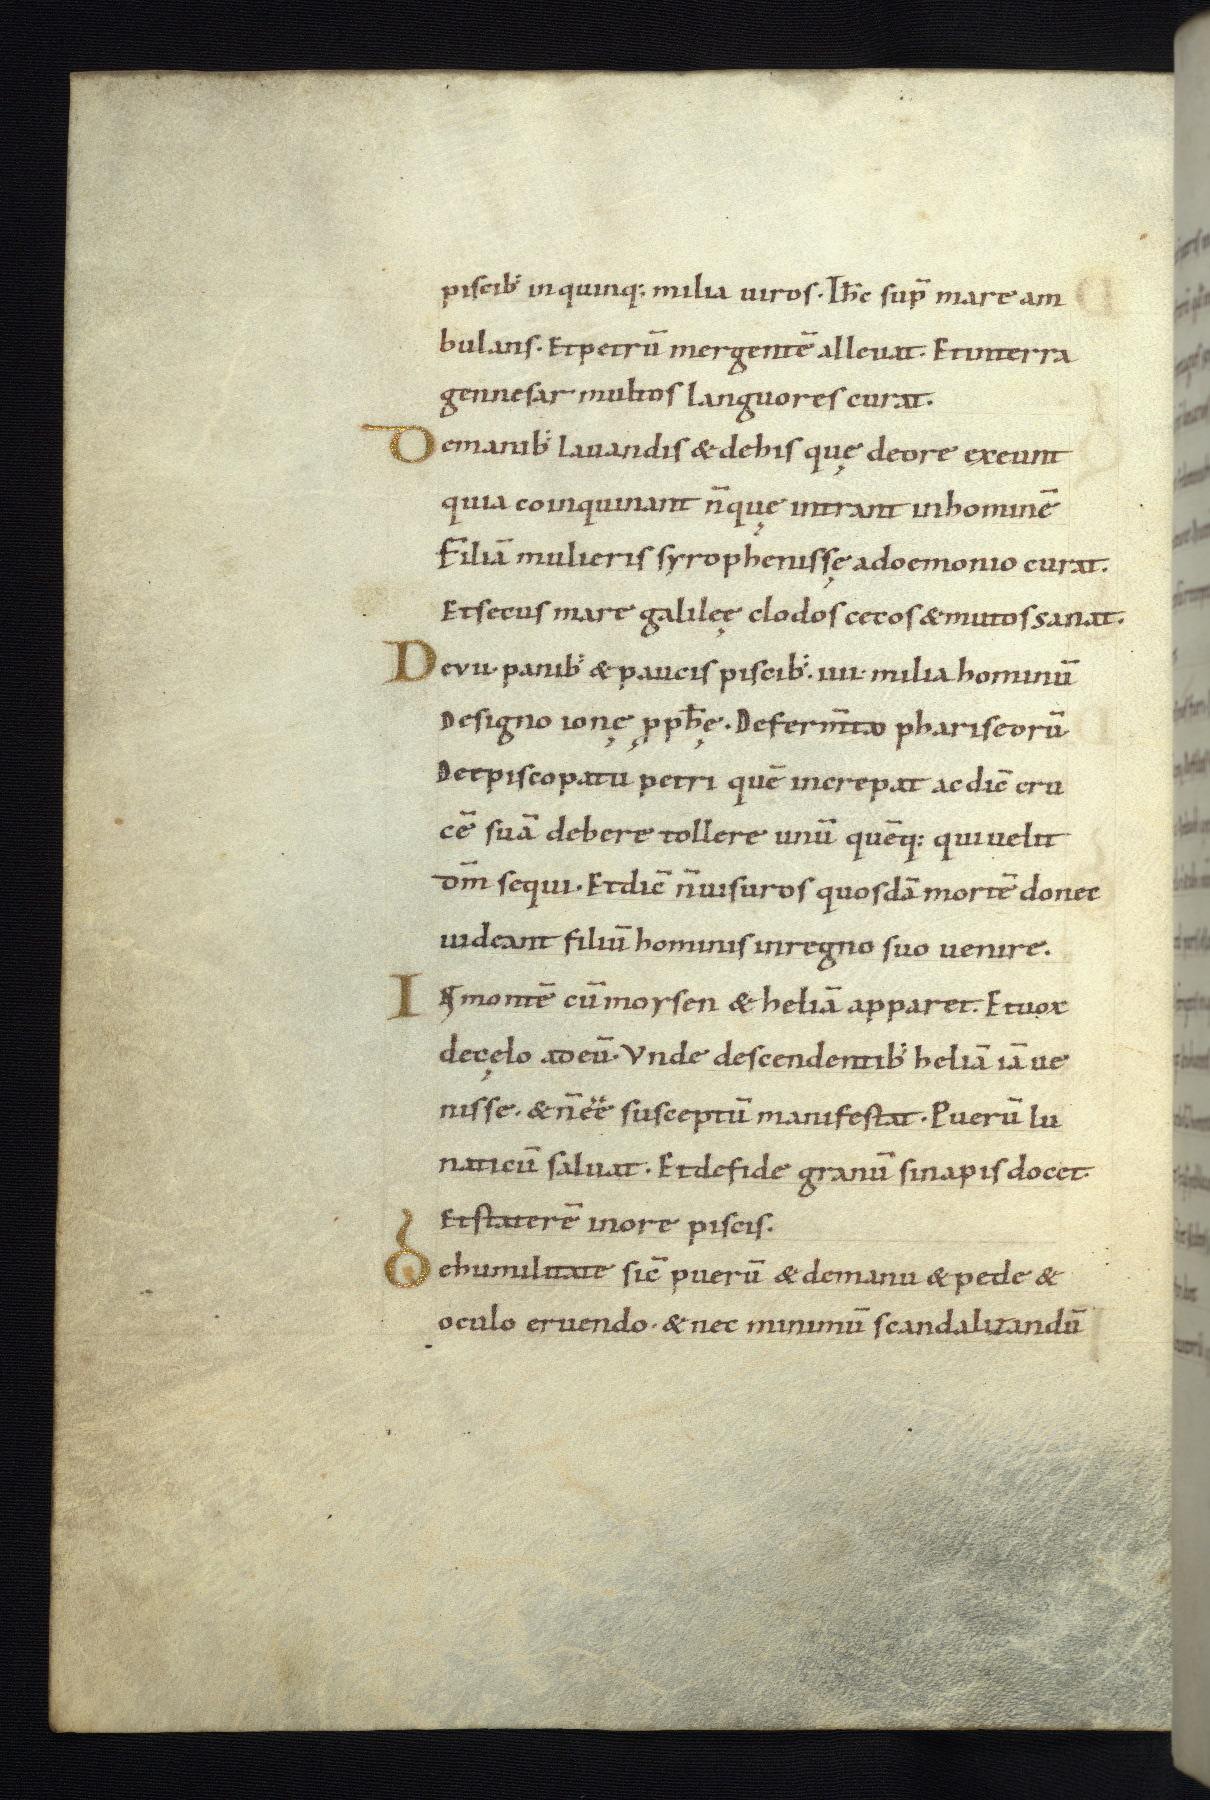 piscib; in quinq; milia uiros. Ihc sup̄ mare am
bulans. Et petrū mergentē alleuat. Et in terra
gennesar multos languores curat.
De manib; lauandis & de his quę de ore exeunt
quia coinquinant n̄ quę intrant in hominē
Filiā mulieris syrophenissę a doemonio curat.
Et secus mare galileę clodos cecos & mutos sanat.
De vii. panib; & paucis piscib;. iiii. milia hominū
De signo ionę p̱phę. De ferm̄to phariseorū
De episcopatu petri quē increpat ac dic̄ cru
cē suā debere tollere unū quēq; qui uelit
dm̄ sequi. Et dic̄ n̄ uisuros quosdā mortē donec
uideant filiū hominis in regno suo uenire.
IN montē cū moysen & heliā apparet. Et uox
de cęlo ad eū. Vnde descendentib; heliā iā ue
nisse. & n̄ eē susceptū manifestat. Puerū lu
naticū saluat. Et de fide granū sinapis docet.
Et staterē in ore piscis.
De humilitate sic̄ puerū & de manu & pede &
oculo eruendo. & nec minimū scandalizandū